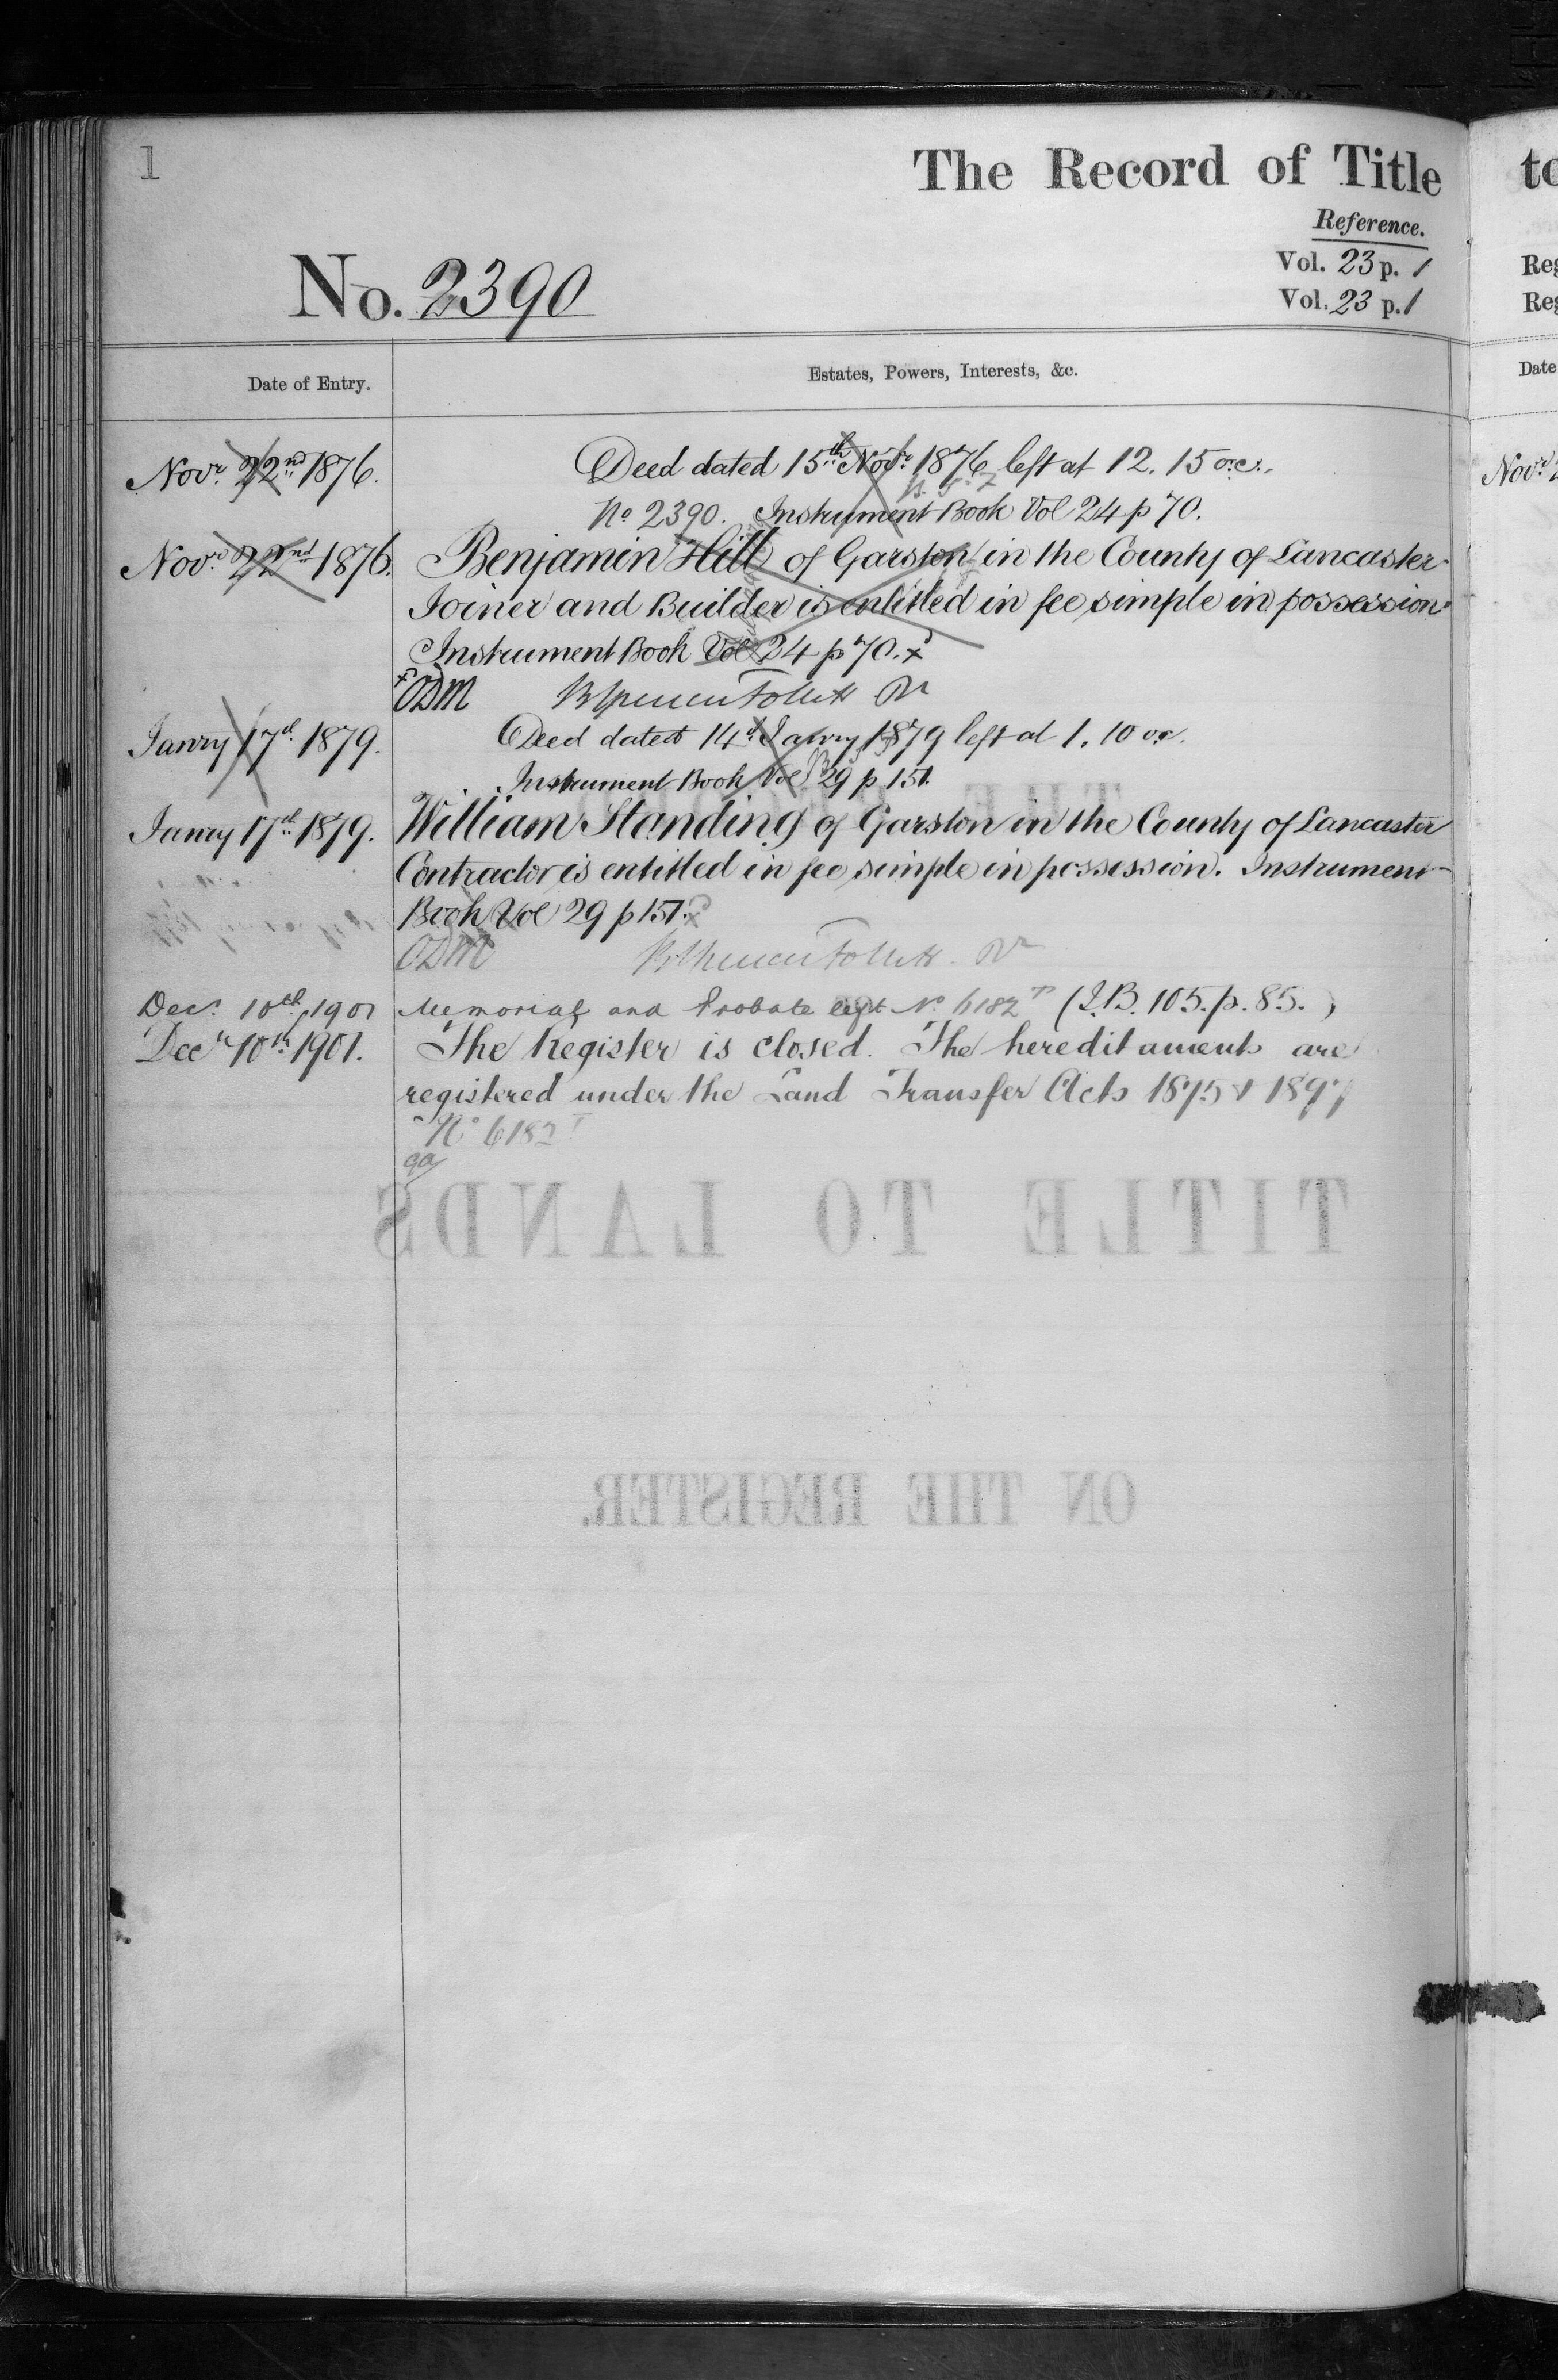 1
The Record of Title
Reference.
No. 2390
Vol. 23 p. 1
Vol. 23 p. 1
Date of Entry.
Estates, Powers, Interests, &c.
Novr. 22nd 1876.
Deed dated 15th Novr. 1876 left at 12.15 oc.
No 2390. Instrument Book Vol 24 p 70.
Novr. 22nd 1876.
Benjamin Hill of Garston in the County of Lancaster
Joiner and Builder is entitled in fee simple in possession
Instrument Book Vol 24 p 70.
ODM
Janry 17th 1879.
Deed dated 14th Janry 1879 left at 1.10 oc.
Instrument Book Vol 29 p 151.
Janry 17th 1879.
William Standing of Garston in the County of Lancaster
Contractor is entitled in fee simple in possession. Instrument
Book Vol 29 p 151.
ODM
Decr. 10th 1901
Memorial and Probate left No 6182 T (I.B. 105. p. 85.)
Decr 10th 1901.
The Register is closed. The hereditaments are
registered under the Land Transfer Acts 1875 & 1897
No 6182 T
TITLE TO LANDS
ON THE REGISTER.
to
Reg
Reg
Date
Novr